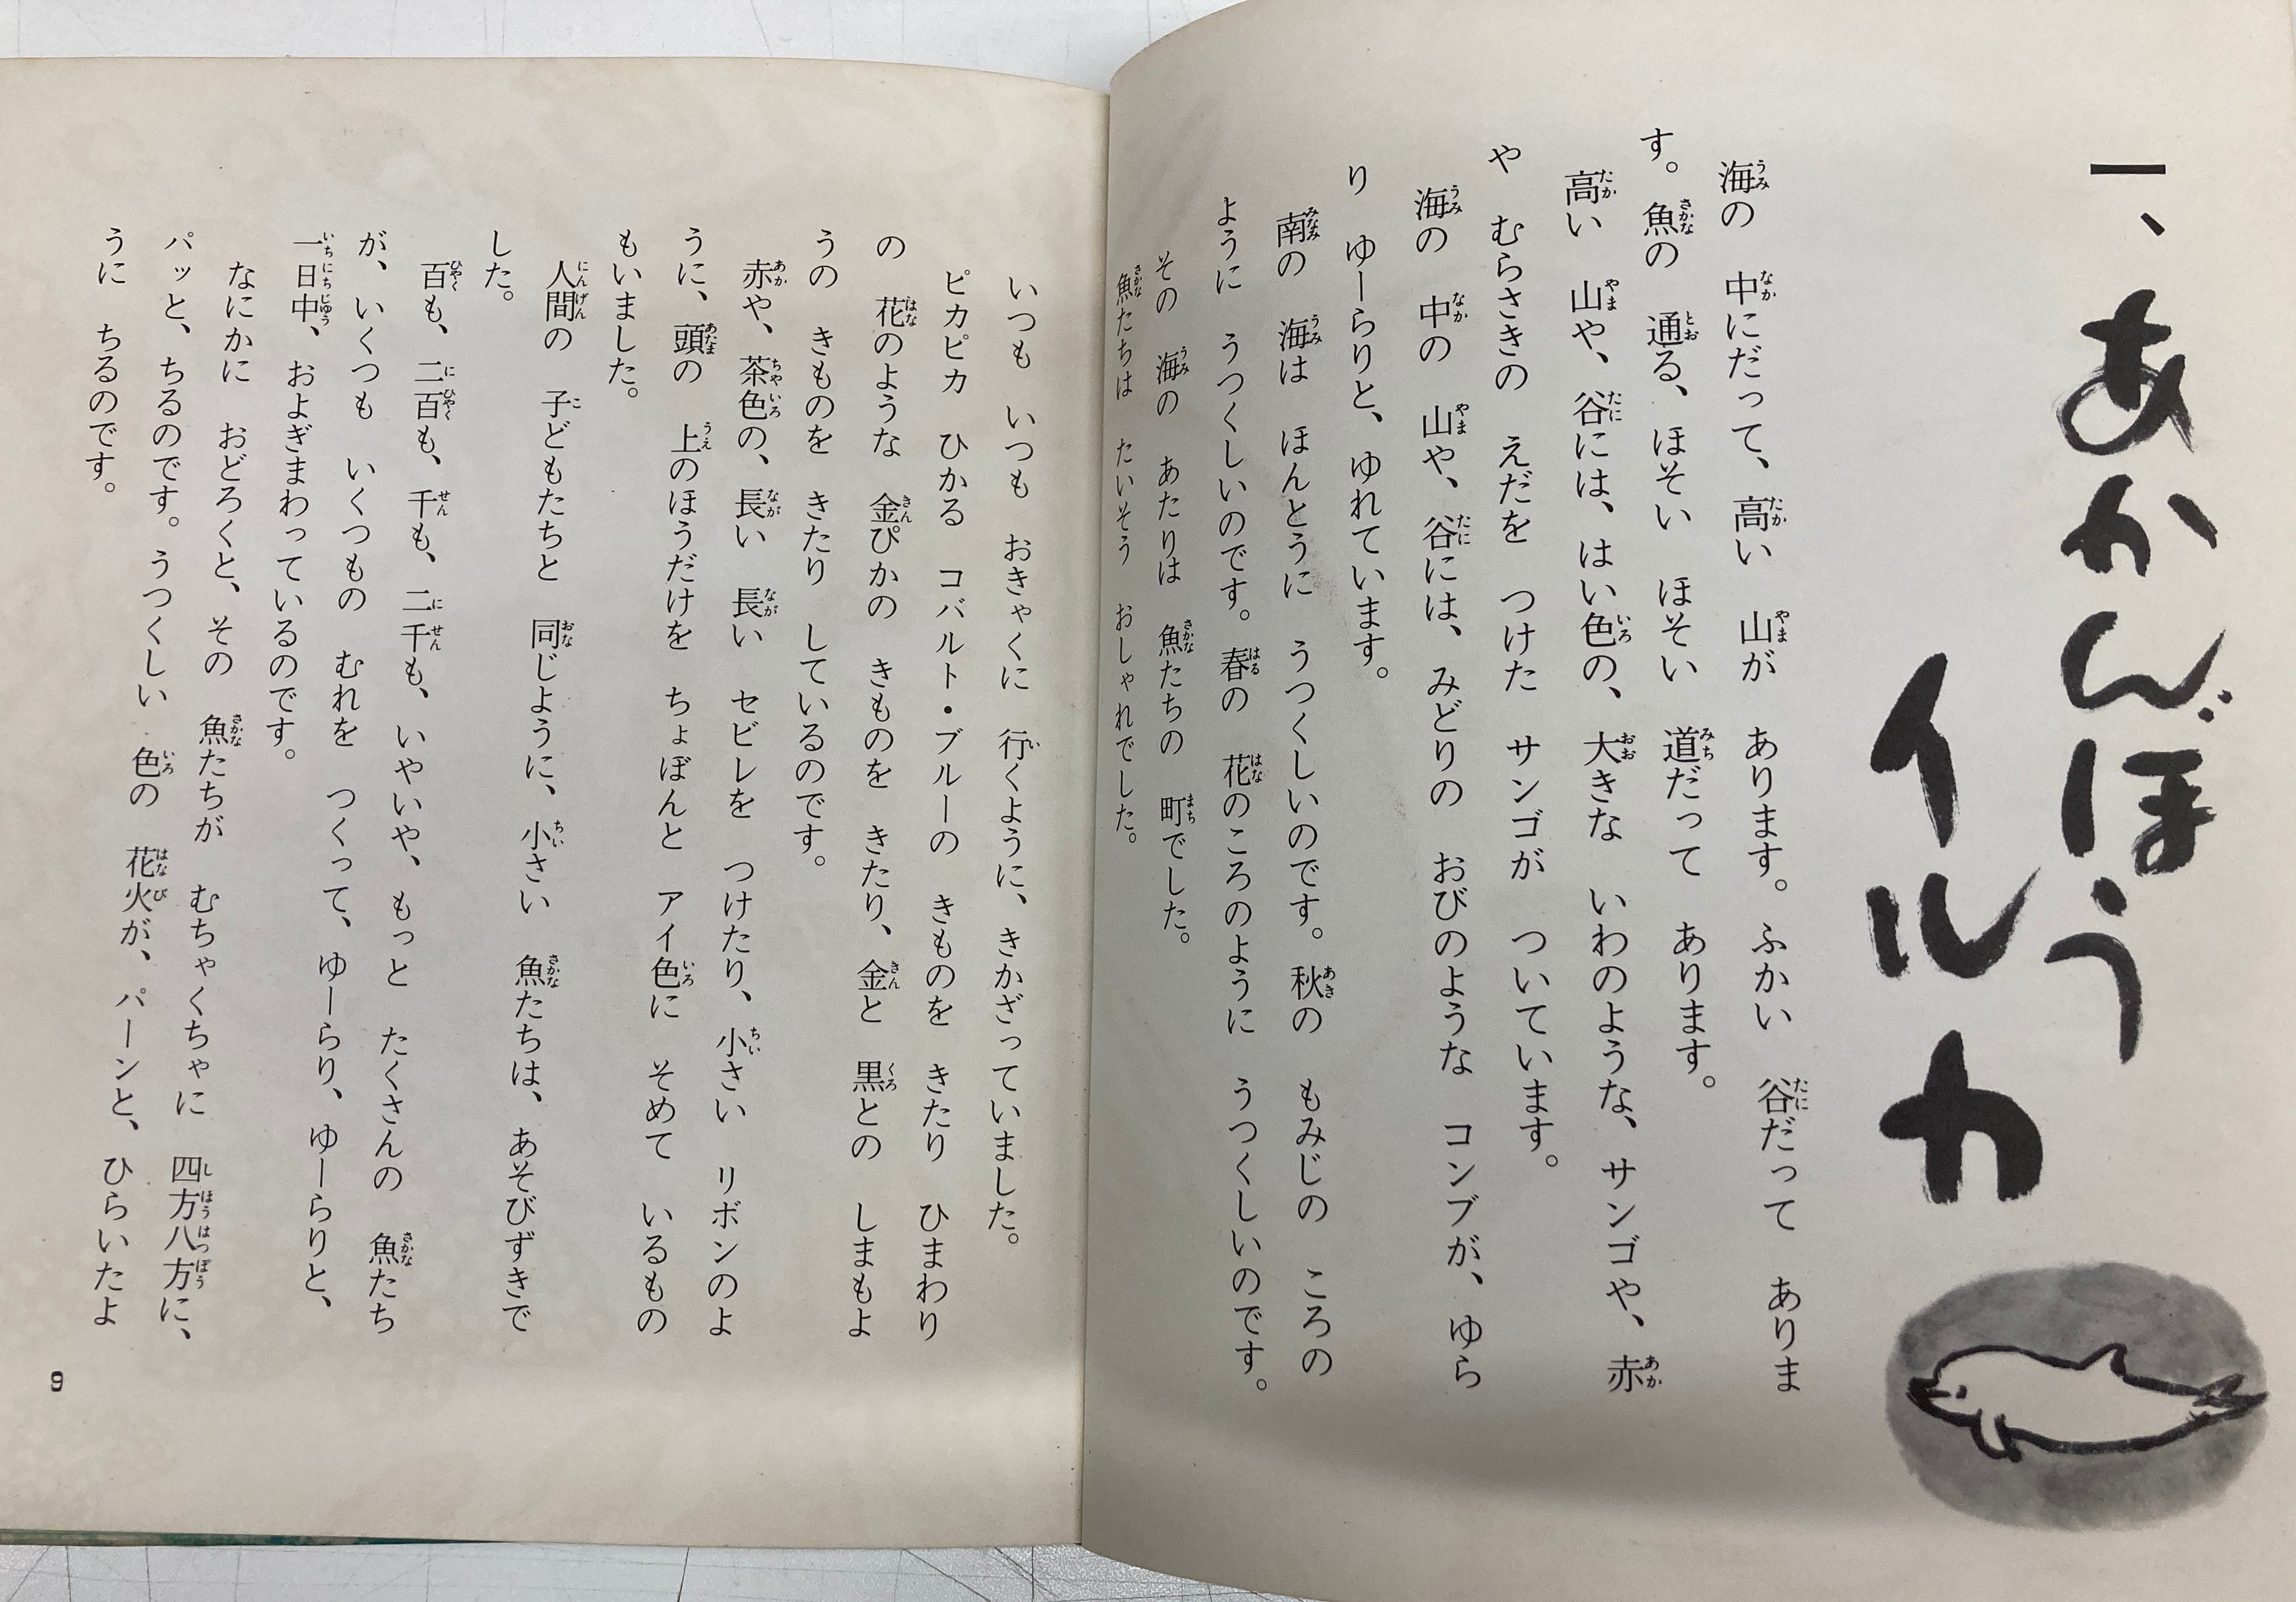 一、あかんぼう
イルカ
海の　中にだって、高い　山が　あります。ふかい　谷だって　ありま
す。魚の　通る、ほそい　ほそい　道だって　あります。
高い　山や、谷には、はい色の、大きな　いわのような、サンゴや、赤
や　むらさきの　えだを　つけた　サンゴが　ついています。
海の　中の　山や、谷には、みどりの　おびのような　コンブが、ゆら
り　ゆーらりと、ゆれています。
南の　海は　ほんとうに　うつくしいのです。秋の　もみじの　ころの
ように　うつくしいのです。春の　花のころのように　うつくしいのです。
その　海の　あたりは　魚たちの　町でした。
魚たちは　たいそう　おしゃれでした。
いつも　いつも　おきゃくに　行くように、きかざっていました。
ピカピカ　ひかる　コバルト・ブルーの　きものを　きたり　ひまわり
の　花のような　金ぴかの　きものを　きたり、金と　黒との　しまもよ
うの　きものを　きたり　しているのです。
赤や、茶色の、長い　長い　セビレを　つけたり、小さい　リボンのよ
うに、頭の　上のほうだけを　ちょぼんと　アイ色に　そめて　いるもの
もいました。
人間の　子どもたちと　同じように、小さい　魚たちは、あそびずきで
した。
百も、二百も、千も、二千も、いやいや、もっと　たくさんの　魚たち
が、いくつも　いくつもの　むれを　つくって、ゆーらり、ゆーらりと、
一日中、およぎまわっているのです。
なにかに　おどろくと、その　魚たちが　むちゃくちゃに　四方八方に、
パッと、ちるのです。うつくしい　色の　花火が、パーンと、ひらいたよ
うに　ちるのです。
9